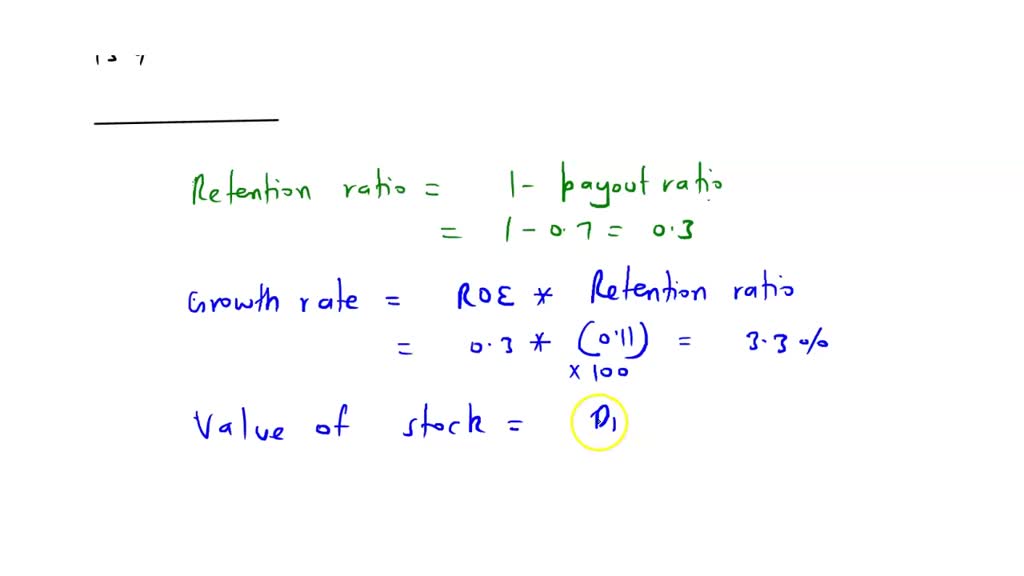 Retention ratio = 1 - payout ratio
= 1 - 0.7 = 0.3
Growth rate = ROE * Retention ratio
= 0.3 * (0.11) = 3.3 %
x 100
Value of stock = D1